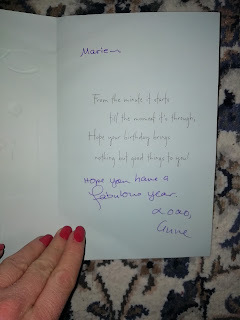 Marlen
From the minute it starts
till the moment it's through,
Hope your birthday brings
nothing but good things to you!
Hope you have a
fabulous year.
xoxo,
Anne